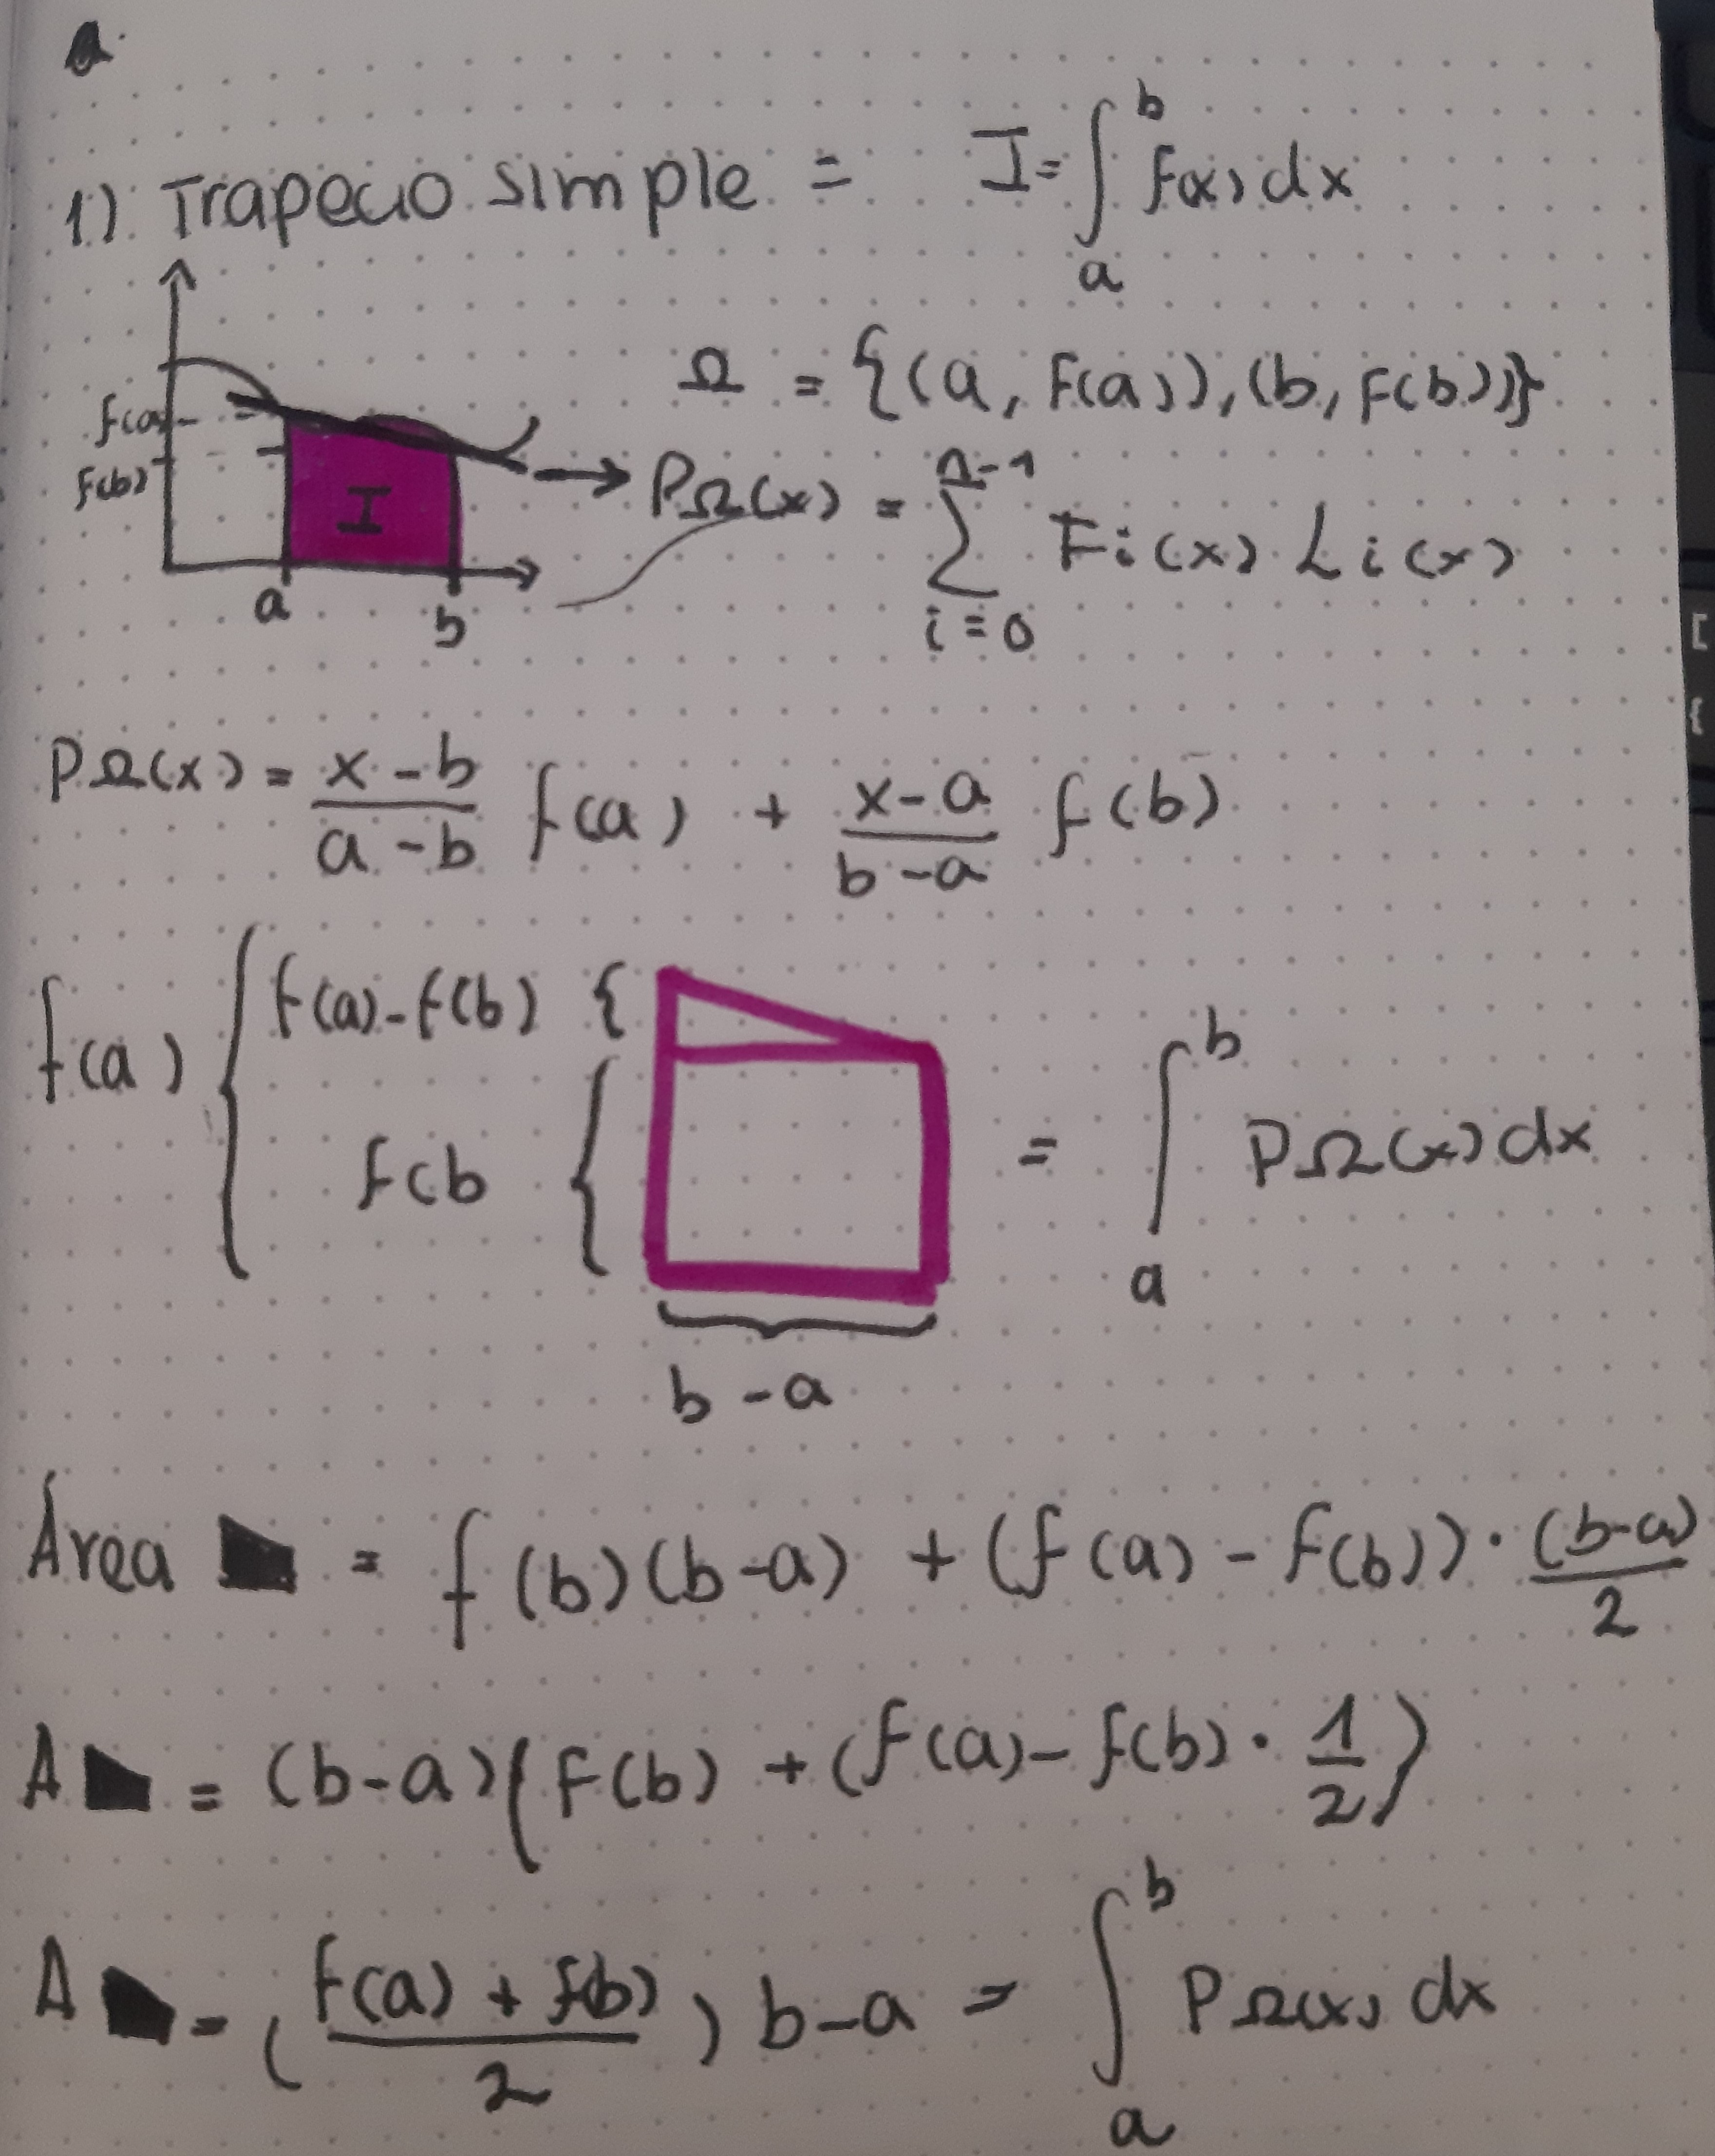 a
1) Trapecio simple = I = ∫_a^b f(x) dx
Ω = {(a, F(a)), (b, F(b))}
f(a)
f(b)
I
a
b
PΩ(x) = ∑_{i=0}^{n-1} Fi(x) Li(x)
PΩ(x) = \frac{x-b}{a-b} f(a) + \frac{x-a}{b-a} f(b)
f(a) { f(a) - f(b) {
f(b {
= ∫_a^b PΩ(x) dx
b - a
Área = f(b)(b-a) + (f(a) - f(b)) · \frac{(b-a)}{2}
A = (b-a)(F(b) + (f(a) - f(b) · \frac{1}{2})
A = (\frac{f(a) + f(b)}{2}) b-a = ∫_a^b PΩ(x) dx